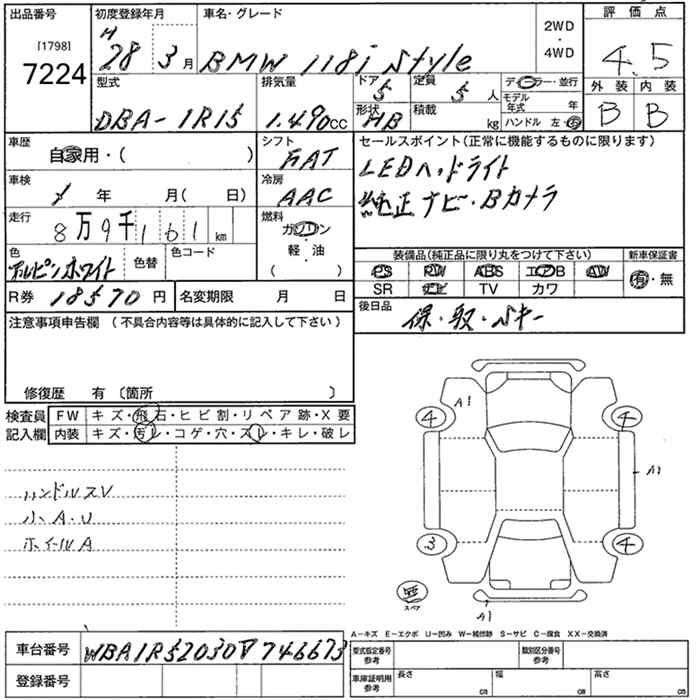 出品番号
[1798]
7224
初度登録年月
H
28 3 月
車名・グレード
BMW 118i Style
2WD
・
4WD
評価点
4.5
型式
DBA-1R15
排気量
1.490 CC
ドア
5
形状
HB
定員
5 人
積載
kg
ディーラー・並行
モデル
年式 年
ハンドル 左・右
外装 内装
B B
車歴
自家用・( )
シフト
FAT
車検
年 月( 日)
冷房
AAC
走行
8万9千161 km
燃料
ガソリン
・
軽・油
( )
色
アルピンホワイト
色替
色コード
R券 18570 円
名変期限 月 日
セールスポイント(正常に機能するものに限ります)
LEDヘッドライト
純正ナビ・Bカメラ
装備品(純正品に限り丸をつけて下さい)
新車保証書
PS PW ABS エアB AW
SR ナビ TV カワ
有・無
後日品
保・取・Sキー
注意事項申告欄 ( 不具合内容等は具体的に記入して下さい )
修復歴 有 〔箇所 〕
検査員
記入欄
FW キズ・飛石・ヒビ割・リペア跡・X要
内装 キズ・汚レ・コゲ・穴・スレ・キレ・破レ
ハンドルスレ
小A・U
ホイールA
A1
4
4
A1
3
4
無
スペア
A1
A-キズ E-エクボ U-凹み W-補修跡 S-サビ C-腐食 XX-交換済
車台番号 WBA1R52030V746673
登録番号
型式指定番号
参考
類別区分番号
参考
車庫証明用
参考
長さ cm
幅 cm
高さ cm